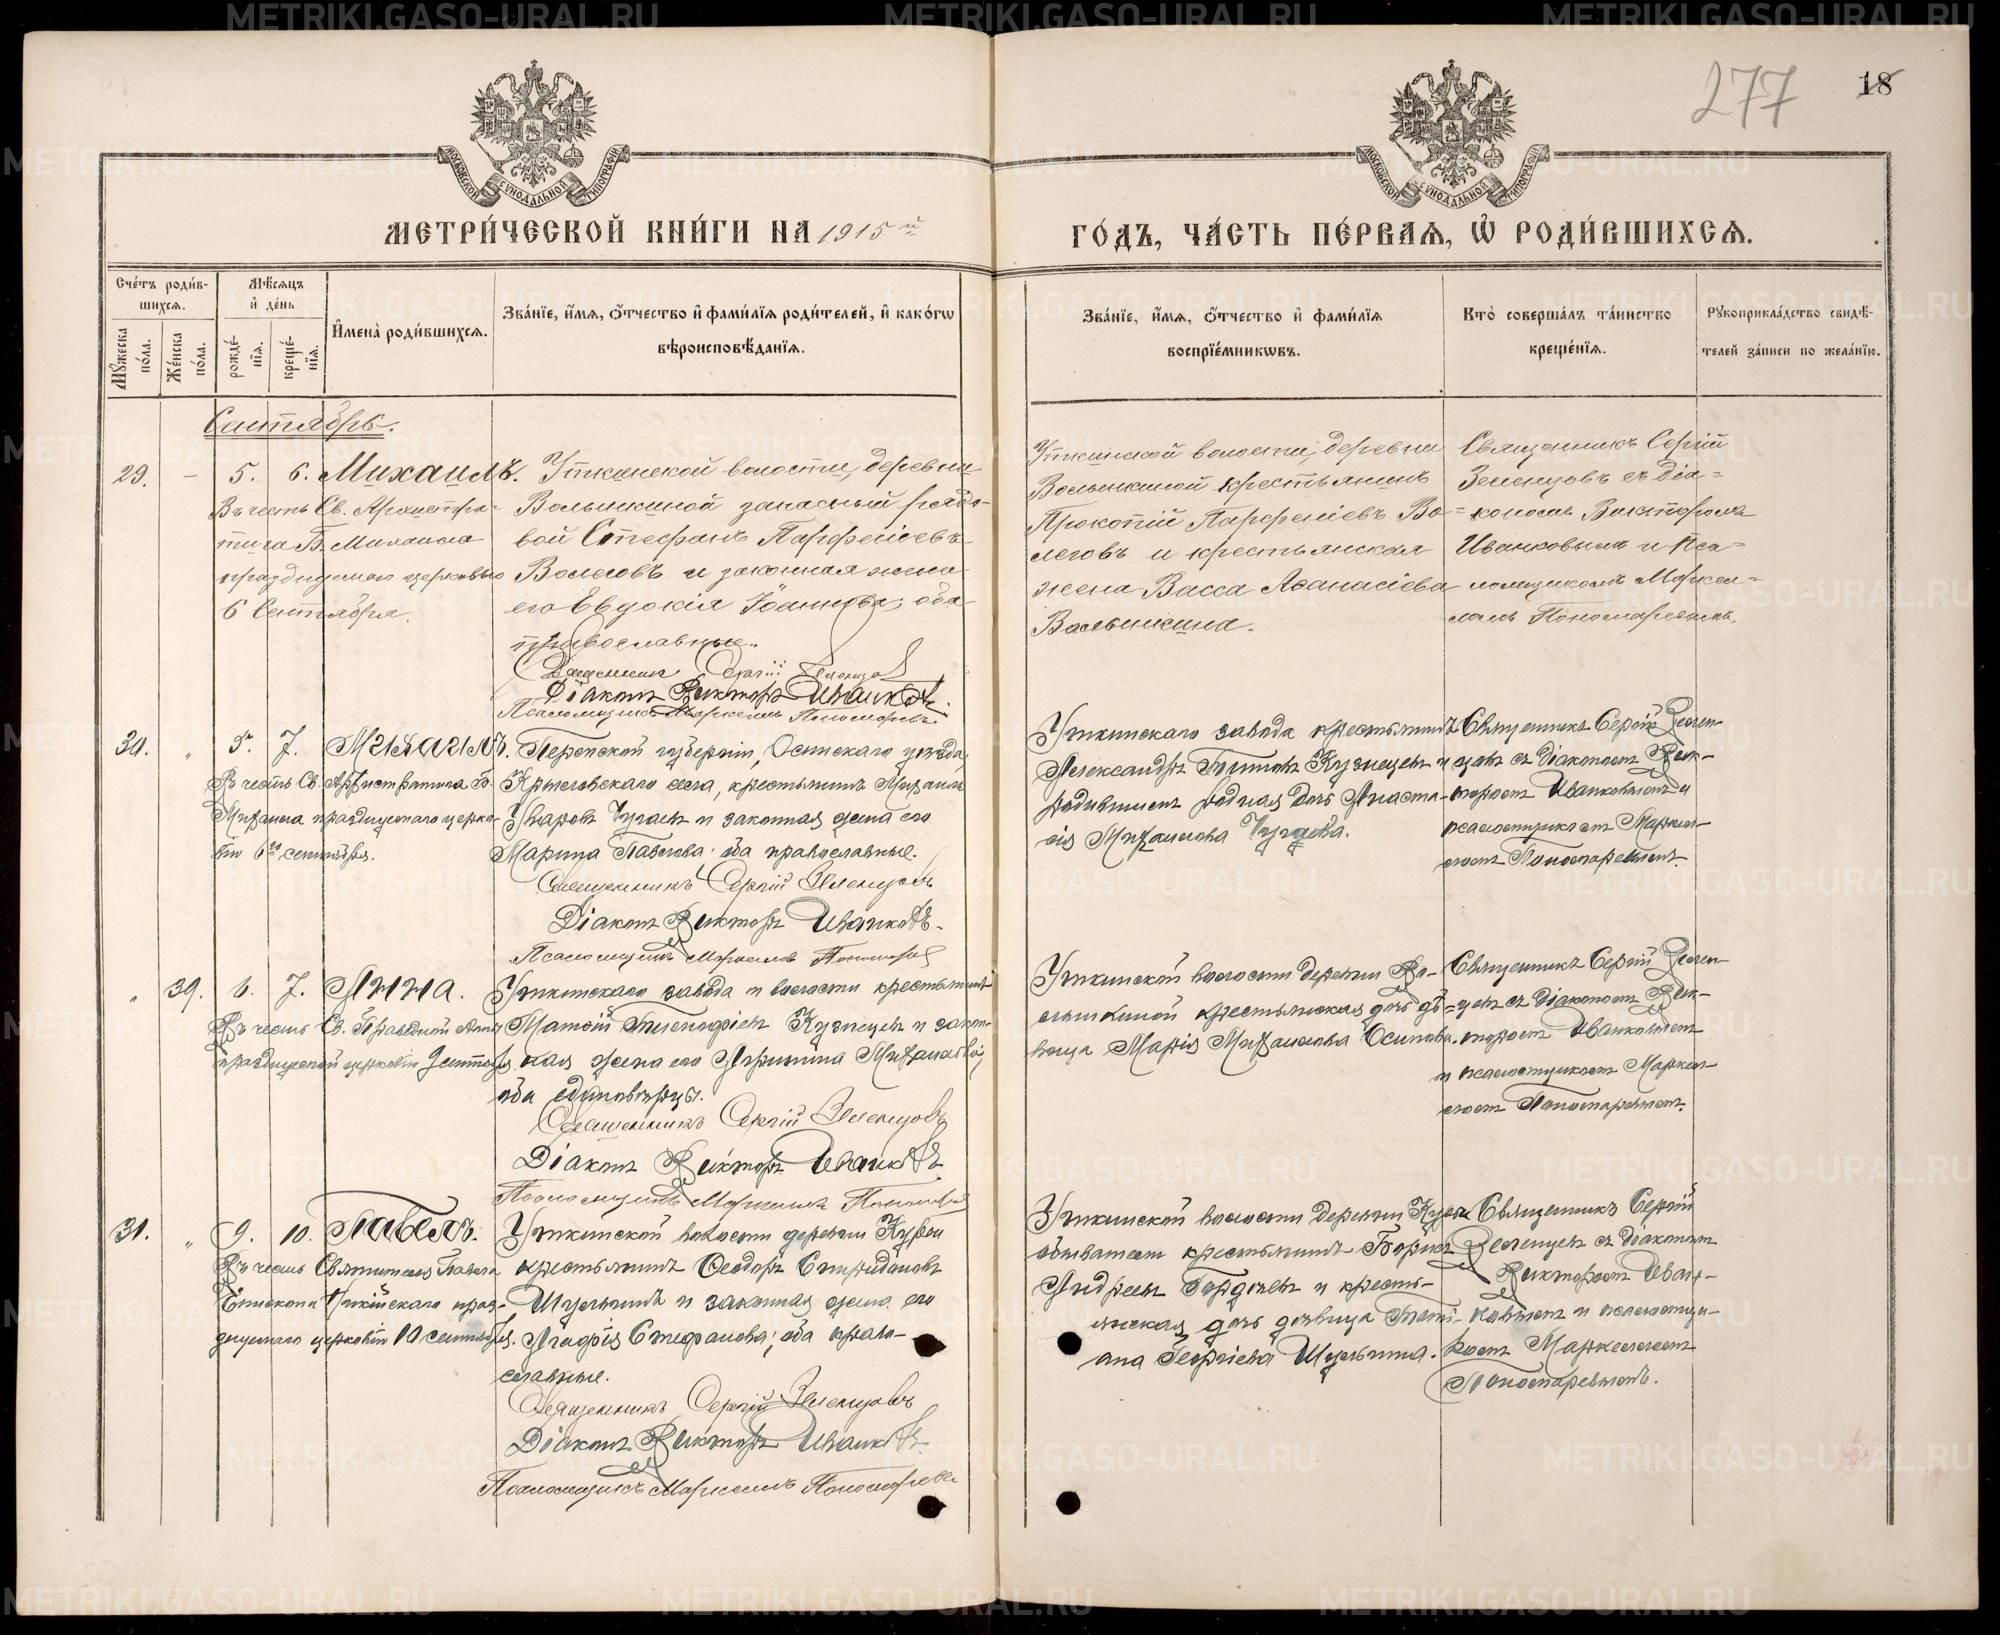 277
18
МОСКОВСКОЙ СѴНОДАЛЬНОЙ ТИПОГРАФІИ
МОСКОВСКОЙ СѴНОДАЛЬНОЙ ТИПОГРАФІИ
МЕТРИ́ЧЕСКОЙ КНИ́ГИ НА 1915 й
ГО́ДЪ, ЧА́СТЬ ПЕ́РВАЯ, Ѡ҆ РОДИ́ВШИХСЯ.
Сче́тъ роди́в-
шихся.
Мꙋ́жеска
по́ла.
Же́нска
по́ла.
Мѣ́сяцъ
и҆ де́нь
рожде́-
нїя.
креще́-
нїя.
И҆мена̀ роди́вшихся.
Зва́нїе, и҆́мя, ѻ҆́тчество и҆ фами́лїя роди́телей, и҆ како́гѡ
вѣроисповѣ́данїя.
Зва́нїе, и҆́мя, ѻ҆́тчество и҆ фами́лїя
воспрїе́мникѡвъ.
Кто̀ соверша́лъ та́инство
креще́нїя.
Рꙋкоприкла́дство свидѣ́-
телей за́писи по жела́нїю.
Сентябрь.
29. - 5. 6. Михаилъ.
Въ честь Св. Архистра-
тига Б. Михаила
празднуемаго церковью
6 Сентября.
Уткинской волости, деревни
Волынкиной запасный рядо-
вой Стефанъ Парфеніевъ
Волеговъ и законная жена
его Евдокія Іоаннова, оба
православные.
Священникъ Сергій Зеленцовъ
Діаконъ Викторъ Иванковъ.
Псаломщикъ Маркеллъ Пономаревъ.
Уткинской волости, деревни
Волынкиной крестьянинъ
Прокопій Парфеніевъ Во=
леговъ и крестьянская
жена Васса Аѳанасіева
Волынкина.
Священникъ Сергій
Зеленцовъ съ Діа=
кономъ Викторомъ
Иванковымъ и Пса=
ломщикомъ Маркел=
ломъ Пономаревымъ.
30. " 5. 7. Михаилъ.
Въ честь Св. Архистратига Б.
Михаила празднуемаго церко-
вію 6го сентября.
Пермской губерніи, Осинскаго уѣзда
села, крестьянинъ Михаилъ
и законная жена его
Марина Павлова; оба православные.
Священникъ Сергій Зеленцовъ
Діаконъ Викторъ Иванковъ.
Псаломщикъ Маркеллъ Пономаревъ
Уткинскаго завода крестьянинъ
Александръ Титовъ Кузнецовъ и
родная дочь Анаста-
сія Михаилова
Священникъ Сергій Зелен-
цовъ съ діакономъ Вик-
торомъ Иванковымъ и
псаломщикомъ Маркел-
ломъ Пономаревымъ.
" 39. 6. 7. Анна.
Въ честь Св. Праведной Анны
празднуемой церковію 9 сентября.
Уткинскаго завода и волости крестьянинъ
Матѳій Кузнецовъ и закон-
ная жена его Михаилова;
оба единовѣрцы.
Священникъ Сергій Зеленцовъ
Діаконъ Викторъ Иванковъ
Псаломщикъ Маркеллъ Пономаревъ
Уткинской волости деревни Во-
лынкиной крестьянская дочь дѣ=
вица Марія Михаилова Осипова.
Священникъ Сергій Зелен-
цовъ съ діакономъ Вик-
торомъ Иванковымъ
и псаломщикомъ Маркел-
ломъ Пономаревымъ.
31. " 9. 10. Павелъ.
Въ честь Святителя Павла
Епископа Никейскаго праз-
днуемаго церковію 10 сентября.
Уткинской волости деревни Курьи
крестьянинъ Ѳеодоръ Спиридоновъ
и законная жена его
Агафія Стефанова; оба право-
славные.
Священникъ Сергій Зеленцовъ
Діаконъ Викторъ Иванковъ
Псаломщикъ Маркеллъ Пономаревъ
Уткинской волости деревни Курьи
крестьянинъ Борисъ
Андреевъ и кресть-
янская дочь дѣвица Тати-
ана Георгіева
Священникъ Сергій
Зеленцовъ съ діакономъ
Викторомъ Иван-
ковымъ и псаломщи-
комъ Маркелломъ
Пономаревымъ.
METRIKI.GASO-URAL.RU